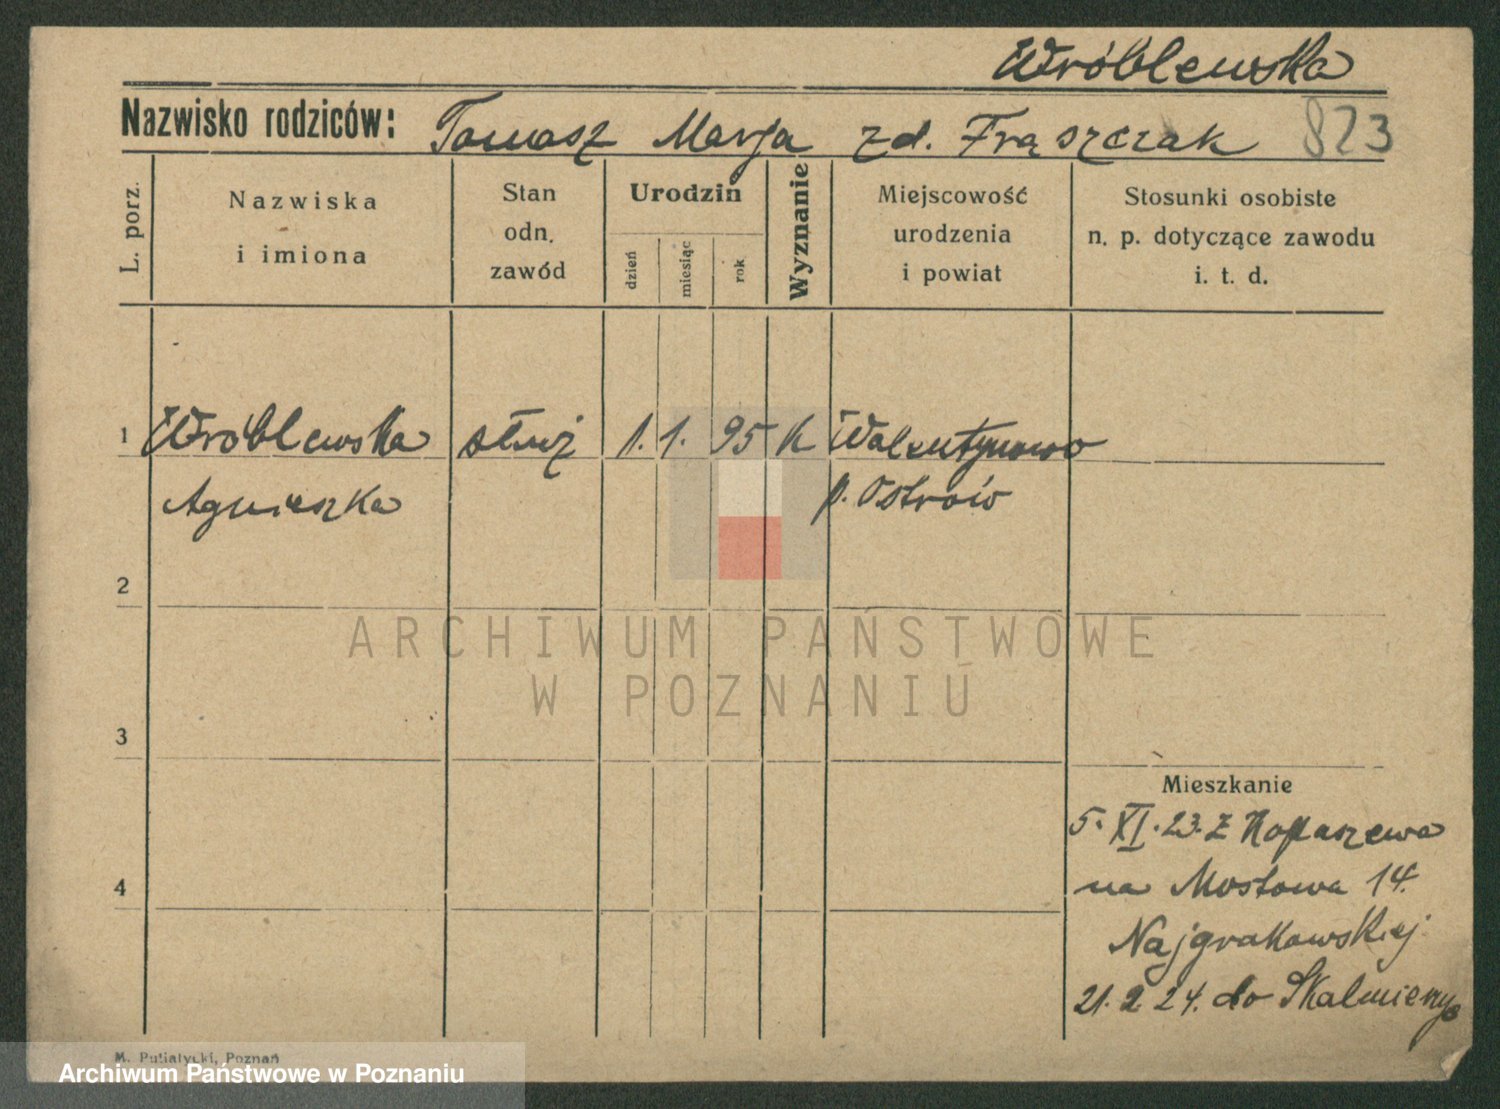 Wróblewska
Nazwisko rodziców: Tomasz Marja zd. Frąszczak 823
L. porz.
Nazwiska
i imiona
Stan
odn.
zawód
Urodzin
dzień
miesiąc
rok
Wyznanie
Miejscowość
urodzenia
i powiat
Stosunki osobiste
n. p. dotyczące zawodu
i. t. d.
1 Wróblewska służ 1. 1. 95 k Walentynowo
Agnieszka p. Ostrów
2
ARCHIWUM PAŃSTWOWE
W POZNANIU
3
Mieszkanie
5. XI. 23. z Kopaszewa
na Mostowa 14.
4
Najgrakowskiej
21. 2 24. do Skalmierzyc
M. Putiatycki, Poznań
Archiwum Państwowe w Poznaniu